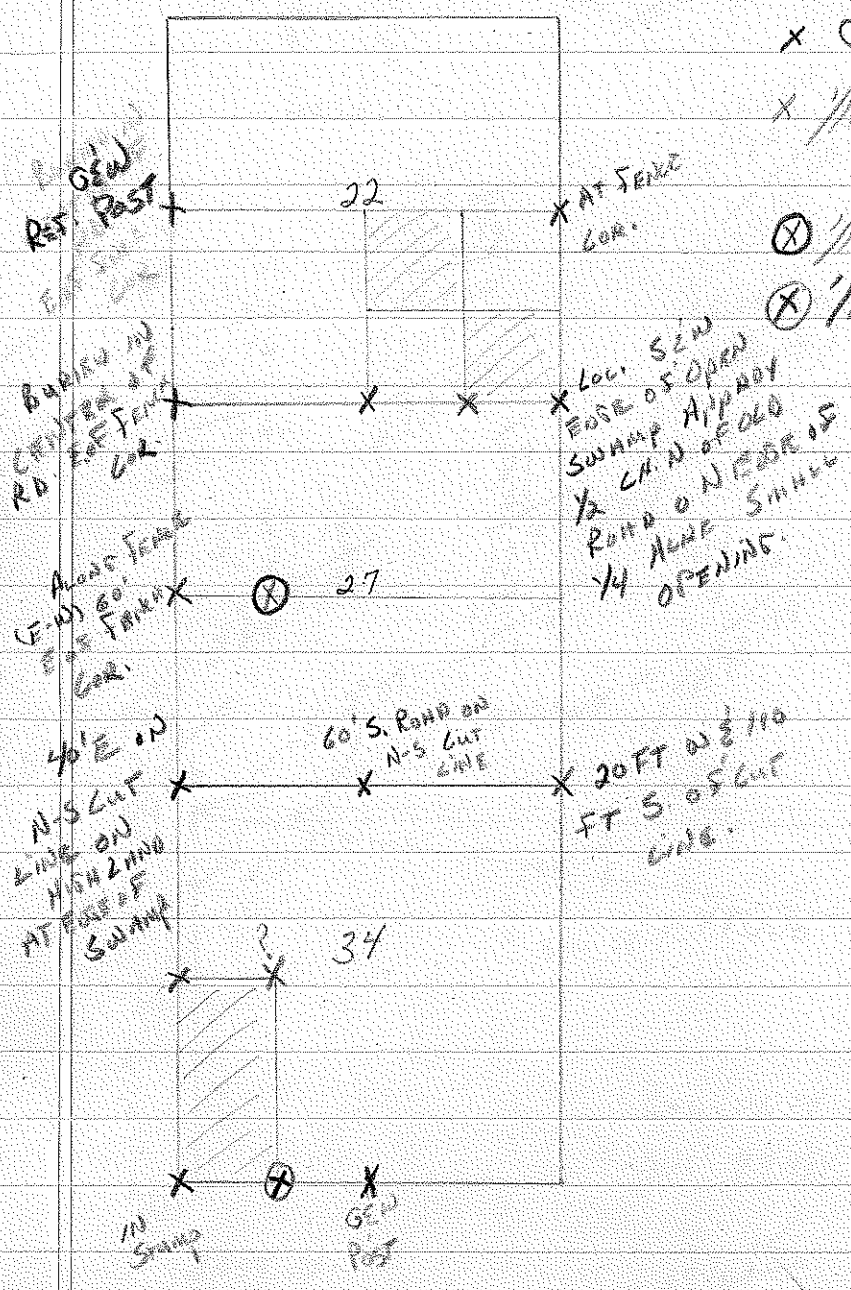 G&W
RET. POST
22
AT FENCE
COR.
BURIED IN
CENTER OF
RD. E. OF FENCE
COR.
LOC. S&W
EDGE OF OPEN
SWAMP APPROX
1/2 CH. N OF OLD
ROAD ON EDGE OF
1/4 ACRE SMALL
OPENING.
ALONG FENCE
(E-W) 60'
E OF FENCE
COR.
27
40' E ON
N-S CUT
LINE ON
HIGH LAND
AT EDGE OF
SWAMP
60' S. ROAD ON
N-S CUT
LINE
20 FT W & 110
FT S OF CUT
LINE.
?
34
IN
G&W
POST